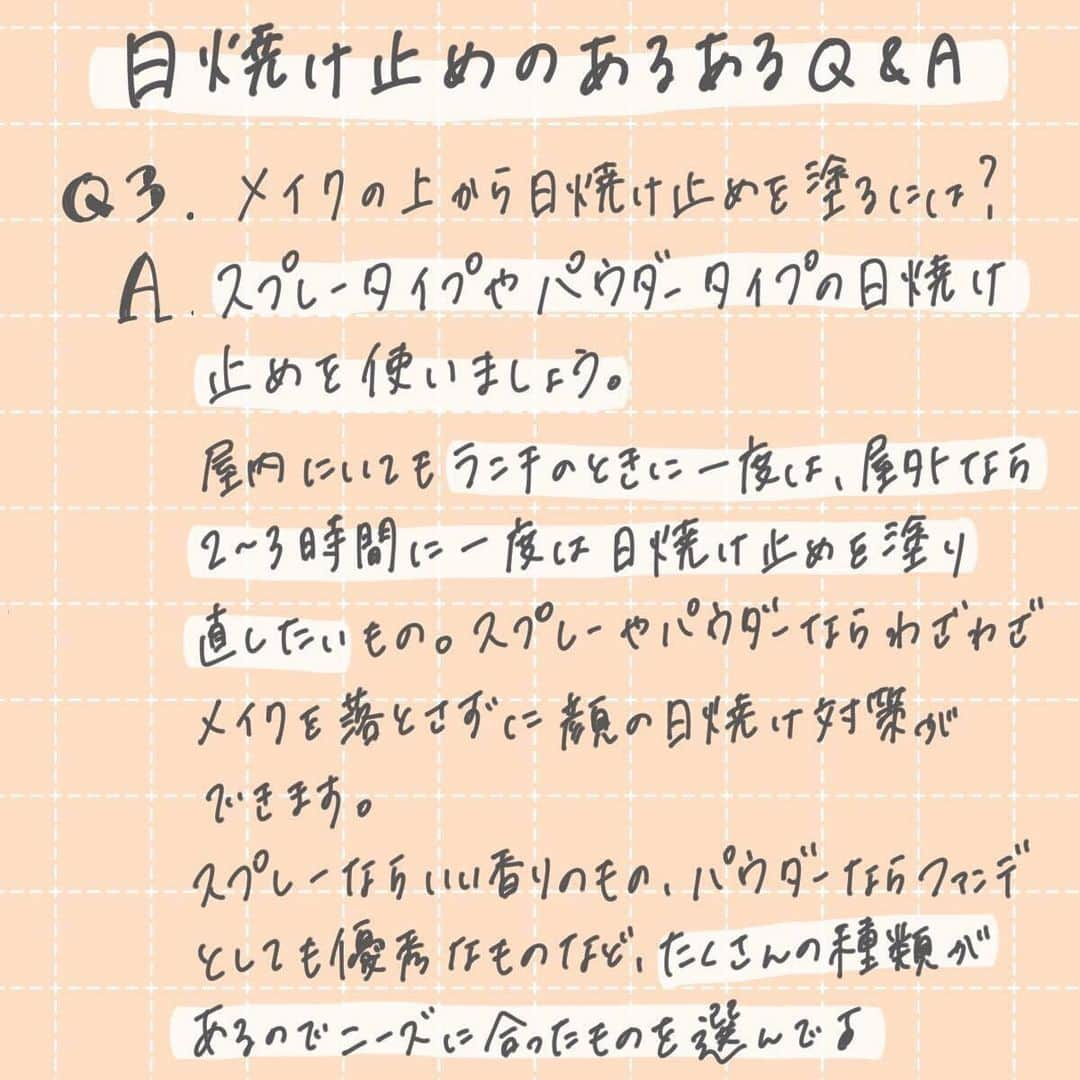 日焼け止めのあるあるQ&A
Q3. メイクの上から日焼け止めを塗るには?
A. スプレータイプやパウダータイプの日焼け
止めを使いましょう。
屋内にいてもランチのときに一度は、屋外なら
2~3時間に一度は日焼け止めを塗り
直したいもの。スプレーやパウダーならわざわざ
メイクを落とさずに顔の日焼け対策が
できます。
スプレーならいい香りのもの、パウダーならファンデ
としても優秀なものなど、たくさんの種類が
あるのでニーズに合ったものを選んでる